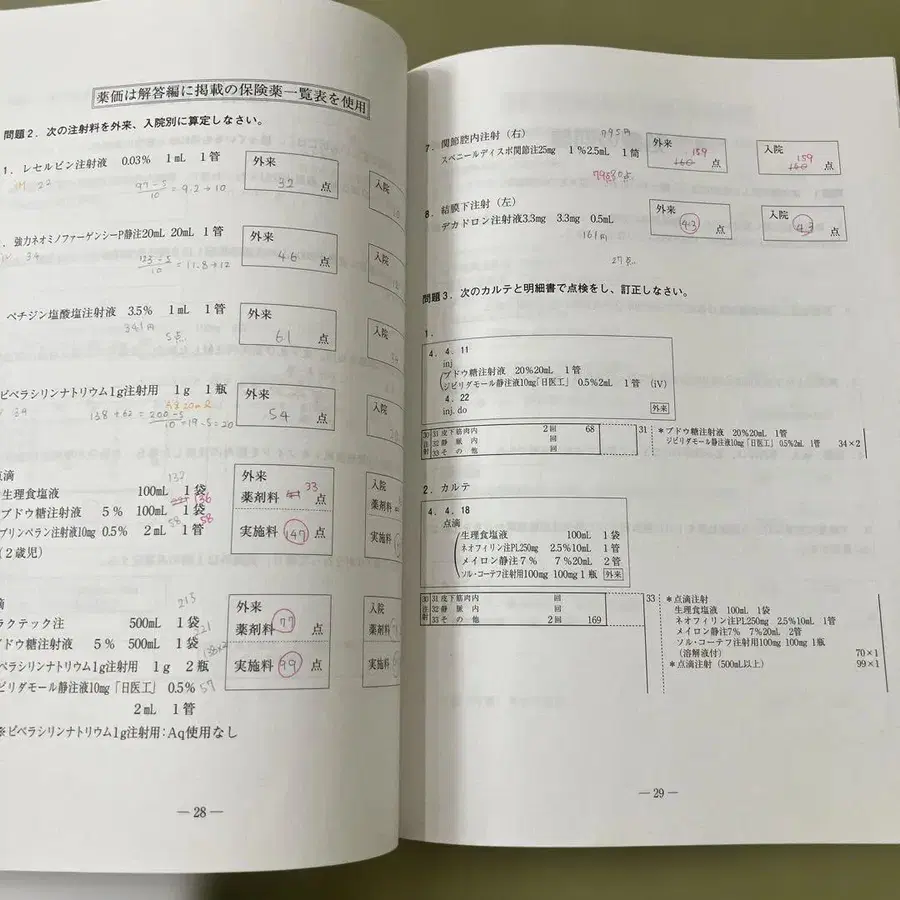 薬価は解答編に掲載の保険薬一覧表を使用
問題2. 次の注射料を外来、入院別に算定しなさい。
1. レセルピン注射液 0.03% 1mL 1管
外来
32 点
入院
IM 22
97-5/10=9.2→10
強力ネオミノファーゲンシーP静注20mL 20mL 1管
外来
46 点
入院
34
123-5/10=11.8→12
ペチジン塩酸塩注射液 3.5% 1mL 1管
外来
61 点
入院
341円
5点
ピペラシリンナトリウム1g注射用 1g 1瓶
外来
54 点
入院
34
138+62=200-5/10=19.5=20
点滴
生理食塩液 100mL 1袋
ブドウ糖注射液 5% 100mL 1袋
プリンペラン注射液10mg 0.5% 2mL 1管
(2歳児)
137
136
58
58
外来
薬剤料 33 点
実施料 147 点
入院
薬剤料
実施料
滴
ラクテック注 500mL 1袋
ブドウ糖注射液 5% 500mL 1袋
ペラシリンナトリウム1g注射用 1g 2瓶
ピリダモール静注液10mg「日医工」0.5%
2mL 1管
※ピペラシリンナトリウム1g注射用:Aq使用なし
215
138×2
59
外来
薬剤料 77 点
実施料 99 点
入院
薬剤料
実施料
― 28 ―
7. 関節腔内注射(右)
795円
スベニールディスポ関節注25mg 1%2.5mL 1筒
外来
159
160 点
入院
159
160 点
8. 結膜下注射(左)
デカドロン注射液3.3mg 3.3mg 0.5mL
161円
27点
外来
43 点
入院
43 点
問題3. 次のカルテと明細書で点検をし、訂正しなさい。
1.
4. 4. 11
inj
ブドウ糖注射液 20%20mL 1管
ジピリダモール静注液10mg「日医工」0.5%2mL 1管 (iV)
4. 22
inj. do
外来
30 注射
31 皮下筋肉内 2回 68
32 静脈内 回
33 その他 回
31
*ブドウ糖注射液 20%20mL 1管
ジピリダモール静注液10mg「日医工」0.5%2mL 1管 34×2
2. カルテ
4. 4. 18
点滴
生理食塩液 100mL 1袋
ネオフィリン注PL250mg 2.5%10mL 1管
メイロン静注7% 7%20mL 2管
ソル・コーテフ注射用100mg 100mg 1瓶 外来
30 注射
31 皮下筋肉内 回
32 静脈内 回
33 その他 2回 169
33
*点滴注射
生理食塩液 100mL 1袋
ネオフィリン注PL250mg 2.5%10mL 1管
メイロン静注7% 7%20mL 2管
ソル・コーテフ注射用100mg 100mg 1瓶
(溶解液付) 70×1
*点滴注射(500mL以上) 99×1
― 29 ―